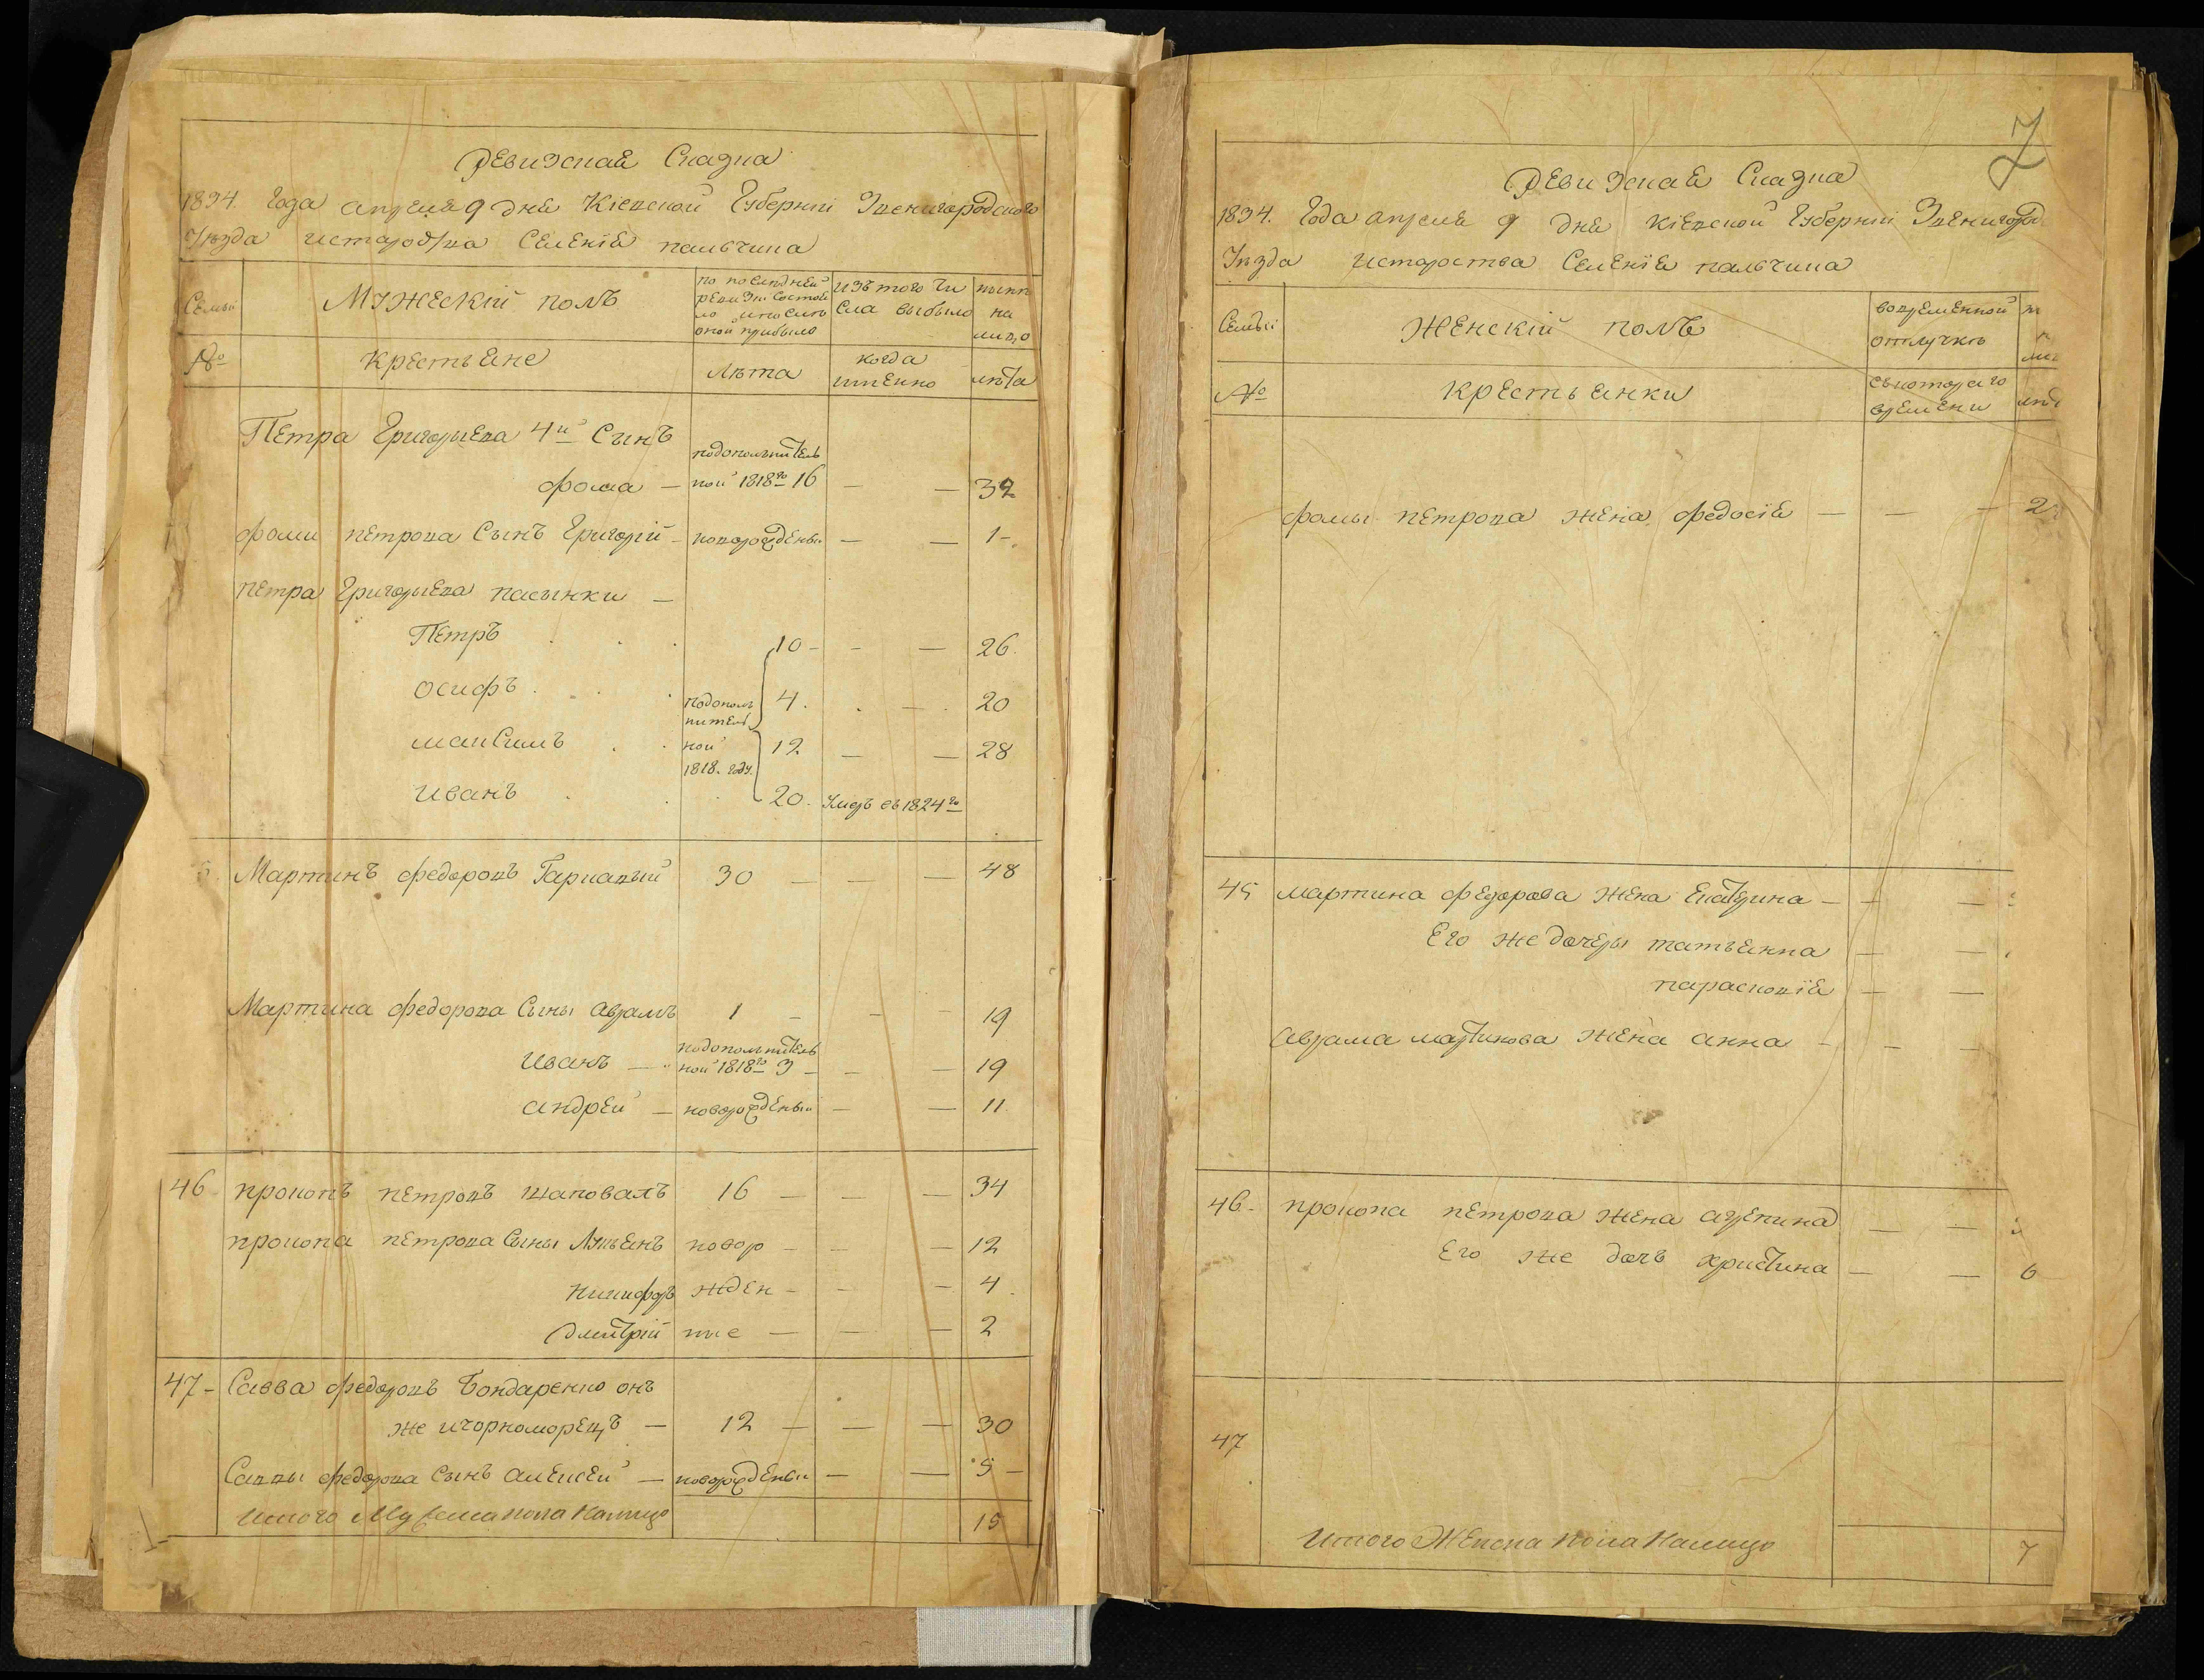 Ревизская Сказка
1834. Года апреля 9 дня Кіевской Губерніи Звенигородского
Уѣзда истароства Селенія пальчика
Семьи
Мужескій полъ
по последней ревизіи Состояло ипослѣ оной прибыло
Изъ того числа выбыло
нынѣ на лицо
№
крестьяне
Лѣта
когда имянно
лѣта
Петра Григорьева 4й Сынъ
подополнитель
фома — ной 1818го 16 — — 32
фоми петрова Сынъ Григорій — новорожденый — — 1 —
петра Григорьева пасынки —
Петръ 10 — — — 26.
осифъ 4. — 20
подополнительной 1818. году.
максимъ 12 — — 28
иванъ 20. Умръ въ 1824го
Мартинъ федоровъ Гаркавый 30 — — — 48
Мартина федорова Сыны аврамъ 1 — — — 19
подополнитель
иванъ — ной 1818го 3 — — — 19
андрей — новорожденый — — 11
46 прокопъ петровъ шаповалъ 16 — — — 34
прокопа петрова Сыны Лукьянъ новор — — — 12
никифоръ жден — — — 4
дмитрій ные — — — 2
47 — Савва федоровъ Бондаренко онъ
же ичорноморецъ — 12 — — — 30
Саввы федорова Сынъ алексей — новорожденый — — 5 —
Итого Мужеска пола Налицо 15
7
Ревизская Сказка
1834. Года апреля 9 дня кіевской Губерніи Звенигород
Уѣзда истароства Селенія пальчика
Семьи
Женскій полъ
вовременной отлучкѣ
№
крестьянки
съкотораго времени
фомы петрова жена федосія — — — 2
45 мартина федорова жена Екатерина — — —
Его же дочеры татьянна — —
парасковія — —
аврама мартинова жена анна — — —
46 — прокопа петрова жена агрепина — —
Его же дочь христина — — 6
47
Итого Женска пола Налицо 7